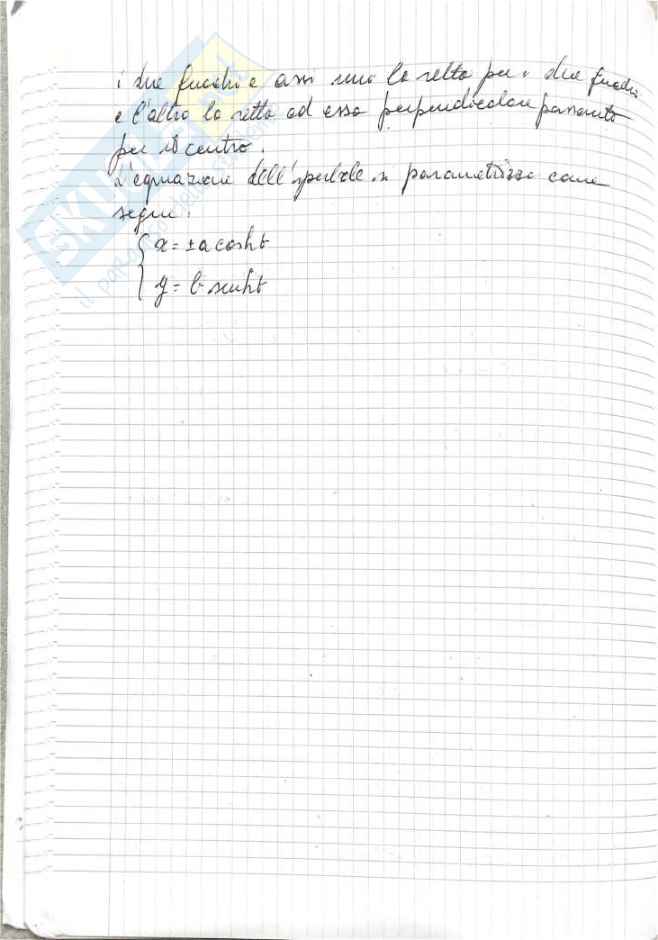 i due fuochi e assi uno la retta per i due fuochi
e l'altro la retta ad essa perpendicolare passante
per il centro.
L'equazione dell'iperbole si parametrizza come
segue:
x = ±a cosht
y = b senht
SKUOLA
il paradiso dello studente